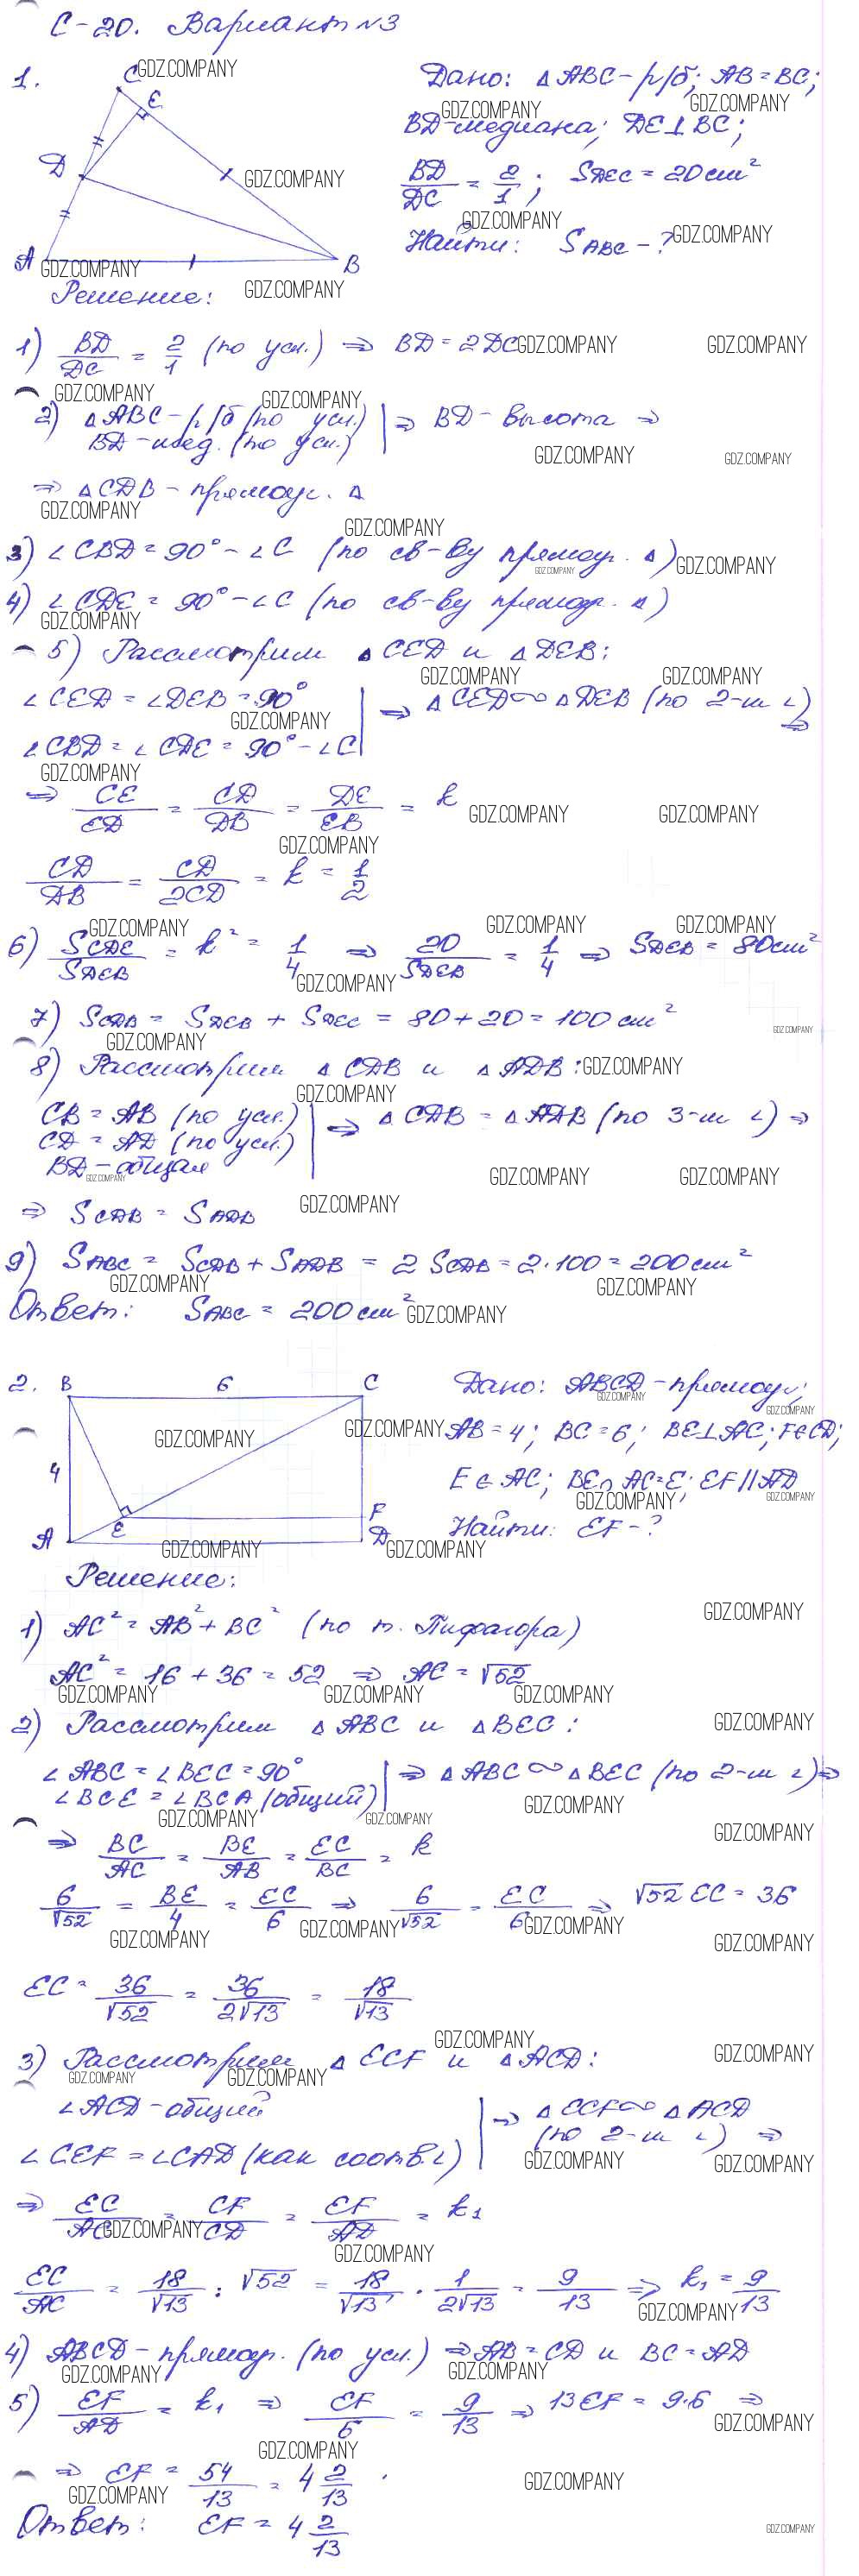 С-20. Вариант №3
1.
C
E
D
A
B
Дано: △ABC - р/б; AB = BC;
BD-медиана; DE⊥BC;
BD/DC = 2/1; SDEC = 20 см²
Найти: SABC - ?
Решение:
1) BD/DC = 2/1 (по усл.) ⇒ BD = 2DC
2) △ABC - р/б (по усл.) | ⇒ BD - высота ⇒
BD - мед. (по усл.)
⇒ △CDB - прямоуг. △
3) ∠CBD = 90° - ∠C (по св-ву прямоуг. △)
4) ∠CDE = 90° - ∠C (по св-ву прямоуг. △)
5) Рассмотрим △CED и △DEB:
∠CED = ∠DEB = 90° | ⇒ △CED ∾ △DEB (по 2-м ∠) ⇒
∠CBD = ∠CDE = 90° - ∠C
⇒ CE/ED = CD/DB = DE/EB = k
CD/DB = CD/2CD = k = 1/2
6) SCDE/SDEB = k² = 1/4 ⇒ 20/SDEB = 1/4 ⇒ SDEB = 80 см²
7) SCDB = SDEB + SDEC = 80 + 20 = 100 см²
8) Рассмотрим △CDB и △ADB:
CB = AB (по усл.) | ⇒ △CDB = △ADB (по 3-м ∠) ⇒
CD = AD (по усл.)
BD - общая
⇒ SCDB = SADB
9) SABC = SCDB + SADB = 2 SCDB = 2·100 = 200 см²
Ответ: SABC = 200 см²
2.
B 6 C
4
A E F D
Дано: ABCD - прямоуг;
AB = 4; BC = 6; BE⊥AC; F∈CD;
E ∈ AC; BE∩AC=E; EF || AD
Найти: EF - ?
Решение:
1) AC² = AB² + BC² (по т. Пифагора)
AC² = 16 + 36 = 52 ⇒ AC = √52
2) Рассмотрим △ABC и △BEC:
∠ABC = ∠BEC = 90° | ⇒ △ABC ∾ △BEC (по 2-м ∠) ⇒
∠BCE = ∠BCA (общий)
⇒ BC/AC = BE/AB = EC/BC = k
6/√52 = BE/4 = EC/6 ⇒ 6/√52 = EC/6 ⇒ √52 EC = 36
EC = 36/√52 = 36/2√13 = 18/√13
3) Рассмотрим △ECF и △ACD:
∠ACD - общий | ⇒ △ECF ∾ △ACD
(по 2-м ∠) ⇒
∠CEF = ∠CAD (как соотв.∠)
⇒ EC/AC = CF/CD = EF/AD = k₁
EC/AC = 18/√13 : √52 = 18/√13 · 1/2√13 = 9/13 ⇒ k₁ = 9/13
4) ABCD - прямоуг. (по усл.) ⇒ AB = CD и BC = AD
5) EF/AD = k₁ ⇒ EF/6 = 9/13 ⇒ 13EF = 9·6 ⇒
⇒ EF = 54/13 = 4 2/13.
Ответ: EF = 4 2/13
GDZ.COMPANY